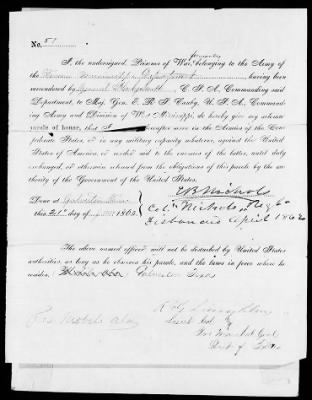 No. 51
I, the undersigned, Prisoner of War, formerly belonging to the Army of
the Trans Mississippi Department having been
surrendered by General C. S. A., Commanding said
Department, to Maj. Gen. E. R. S. Canby, U. S. A., Command-
ing Army and Division of West Mississippi, do hereby give my solemn
parole of honor, that I hereafter serve in the Armies of the Con-
federate States, or in any military capacity whatever, against the United
States of America, or render aid to the enemies of the latter, until duly
exchanged, or otherwise released from the obligations of this parole by the au-
thority of the Government of the United States.
E B Nichols
Done at Galveston Texas
Col Nichols Reg
this 21st day of 1865.
Disbanded April 1862
The above named officer will not be disturbed by United States
authorities, as long as he observes his parole, and the laws in force where he
resides, Galveston Texas
Lieut Col
Pro Marshal Genl
Dist of Texas